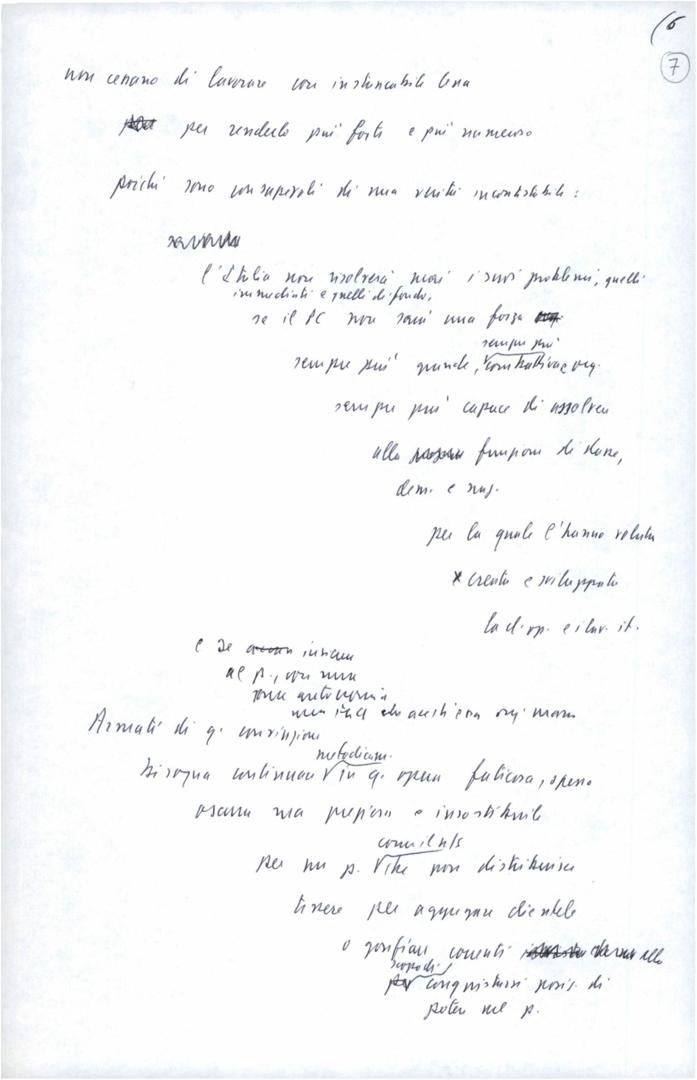 (6
7
non cessano di lavorare con instancabile lena
per renderlo più forte e più numeroso
poiché sono consapevoli di una verità incontestabile:
l'Italia non risolverà mai i suoi problemi, quelli
immediati e quelli di fondo,
se il PC non sarà una forza
sempre più
sempre più grande, combattiva e org.
sempre più capace di assolvere
alla funzione di classe,
dem. e naz.
per la quale l'hanno voluta
x creata e sviluppata
la cl. op. e i lav. it.
e se insieme
al p., con una
sua autonomia
Armati di q. convinzione
metodicam.
bisogna continuare in q. opera faticosa, spesso
oscura ma preziosa e insostituibile
per un p. che non distribuisce
tessere per aggregare clientele
o gonfiare correnti allo
scopo di
conquistarsi posiz. di
potere nel p.